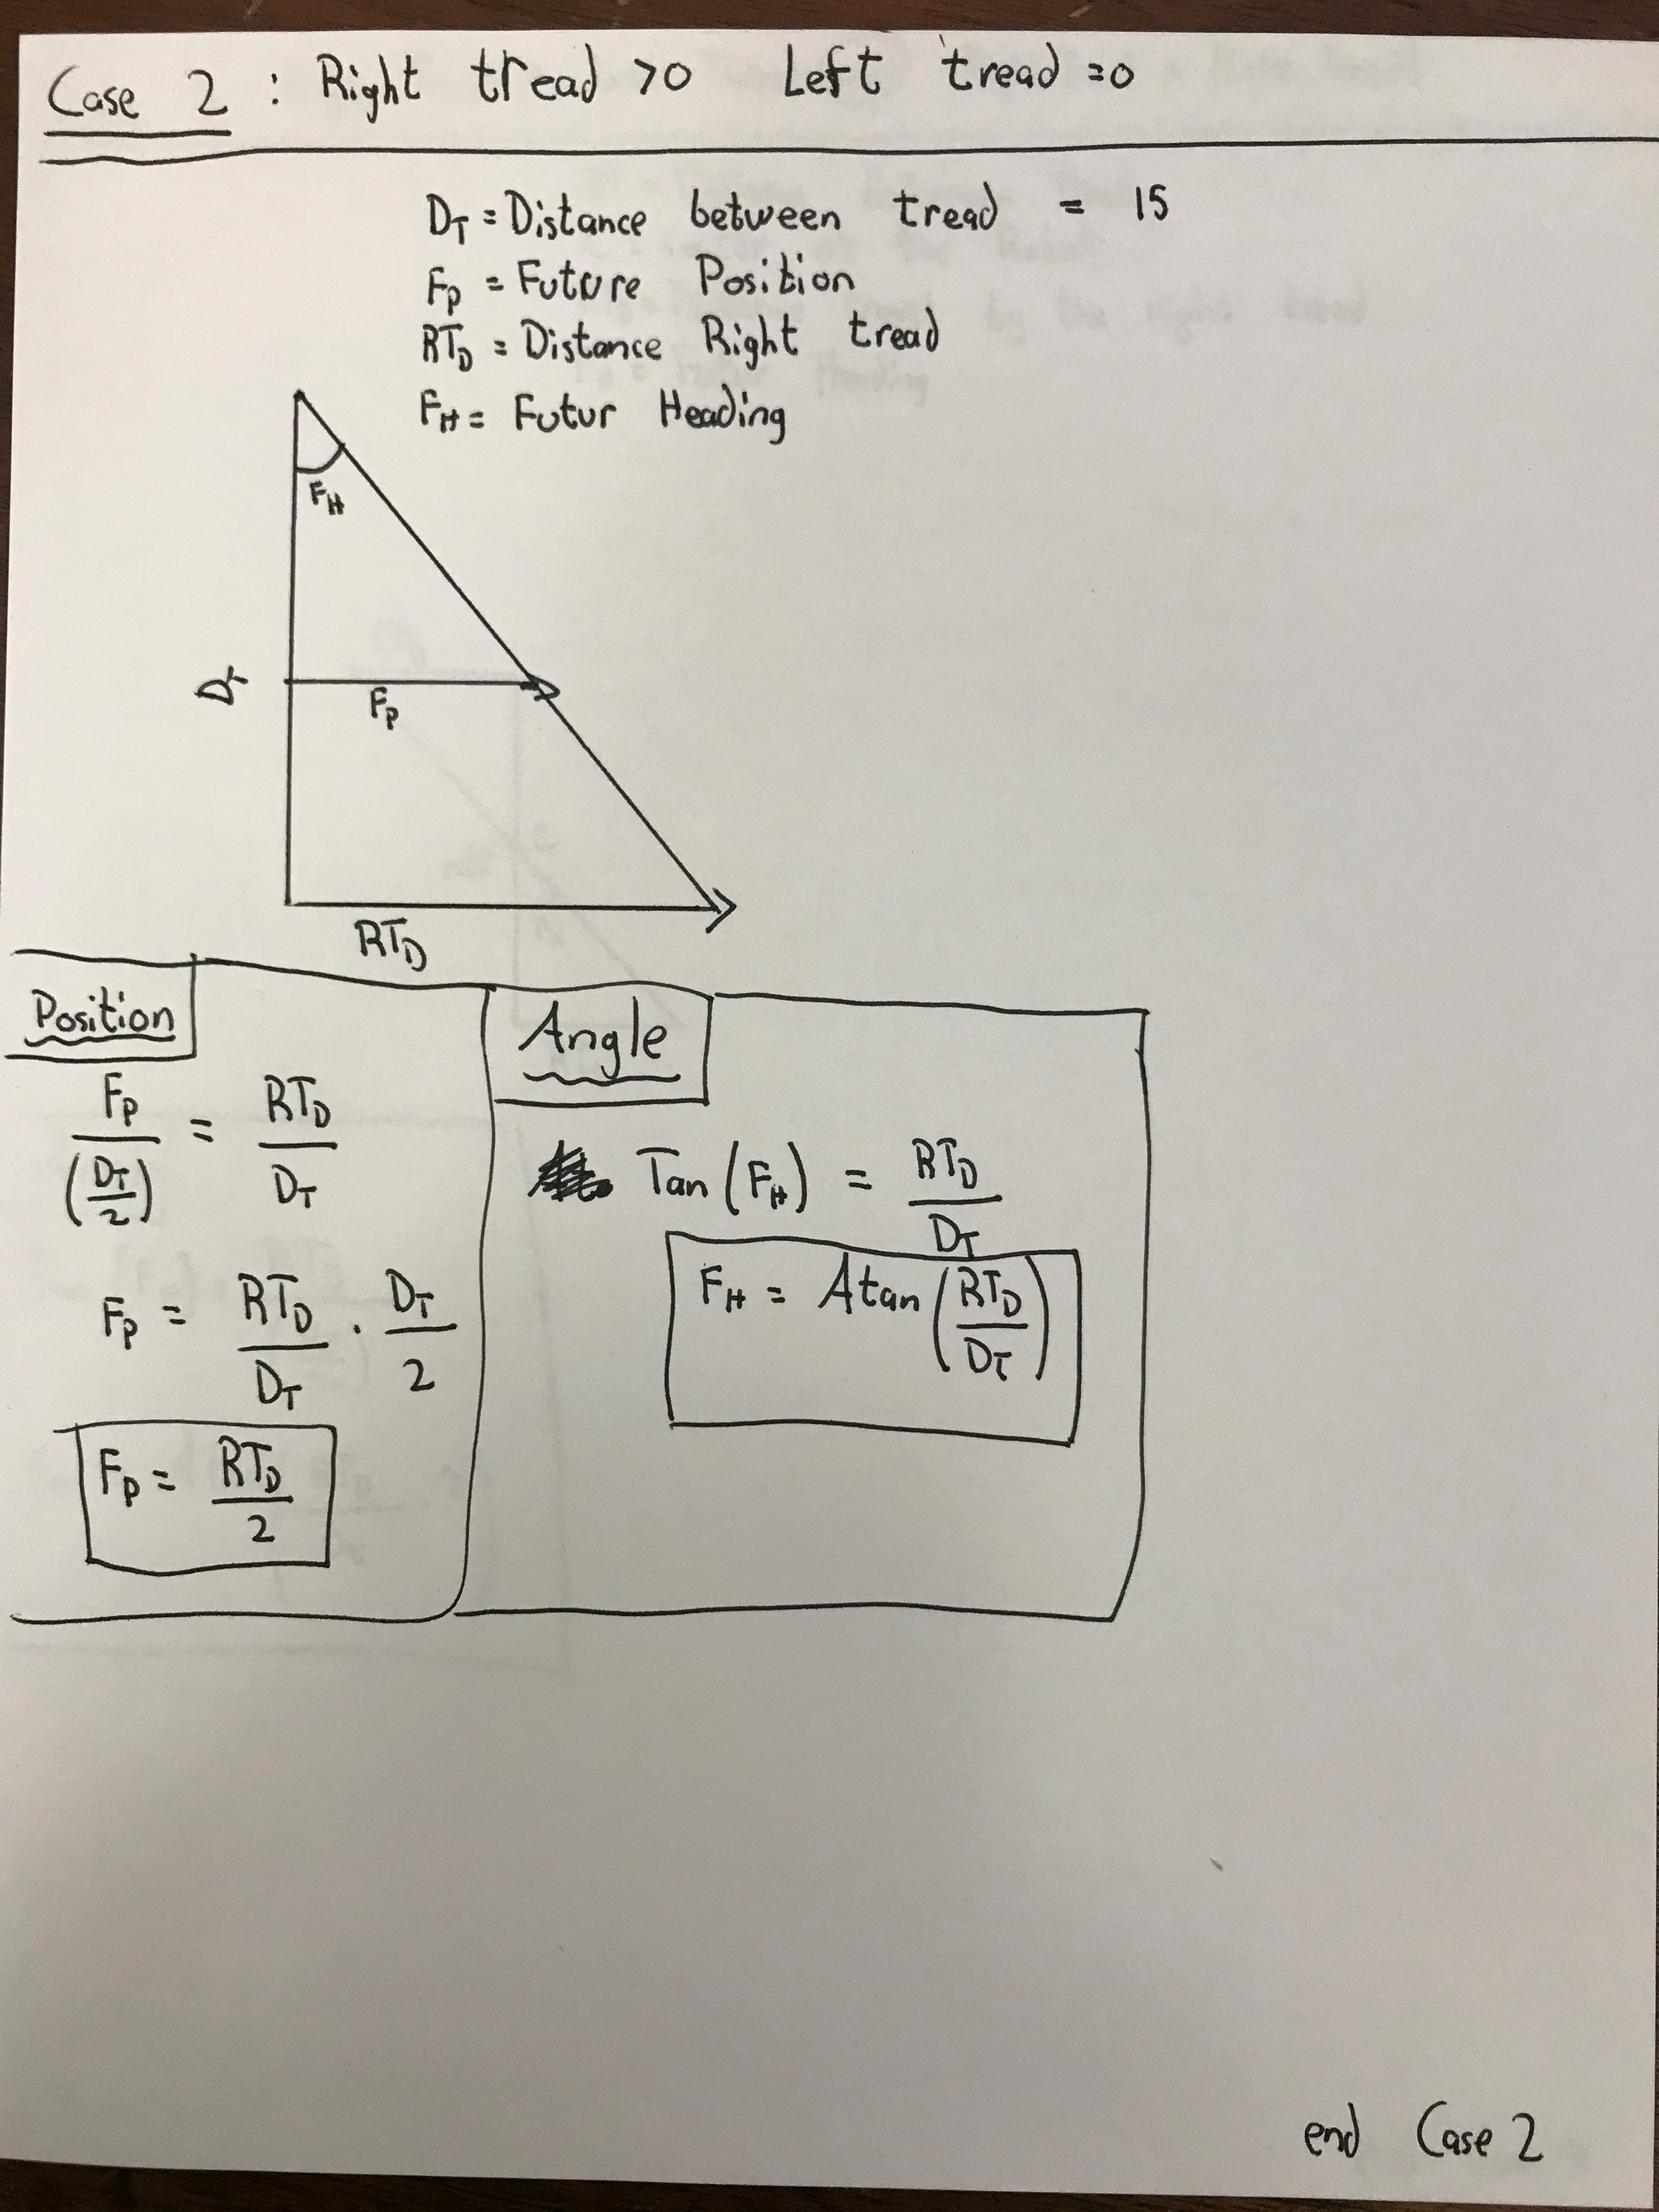 Case 2 : Right tread >0 Left tread =0
D_T = Distance between tread = 15
F_P = Future Position
RT_D = Distance Right tread
F_H = Futur Heading
F_H
D_T
F_P
RT_D
Position
F_P / (D_T / 2) = RT_D / D_T
F_P = RT_D / D_T · D_T / 2
F_P = RT_D / 2
Angle
Tan (F_H) = RT_D / D_T
F_H = Atan (RT_D / D_T)
end Case 2